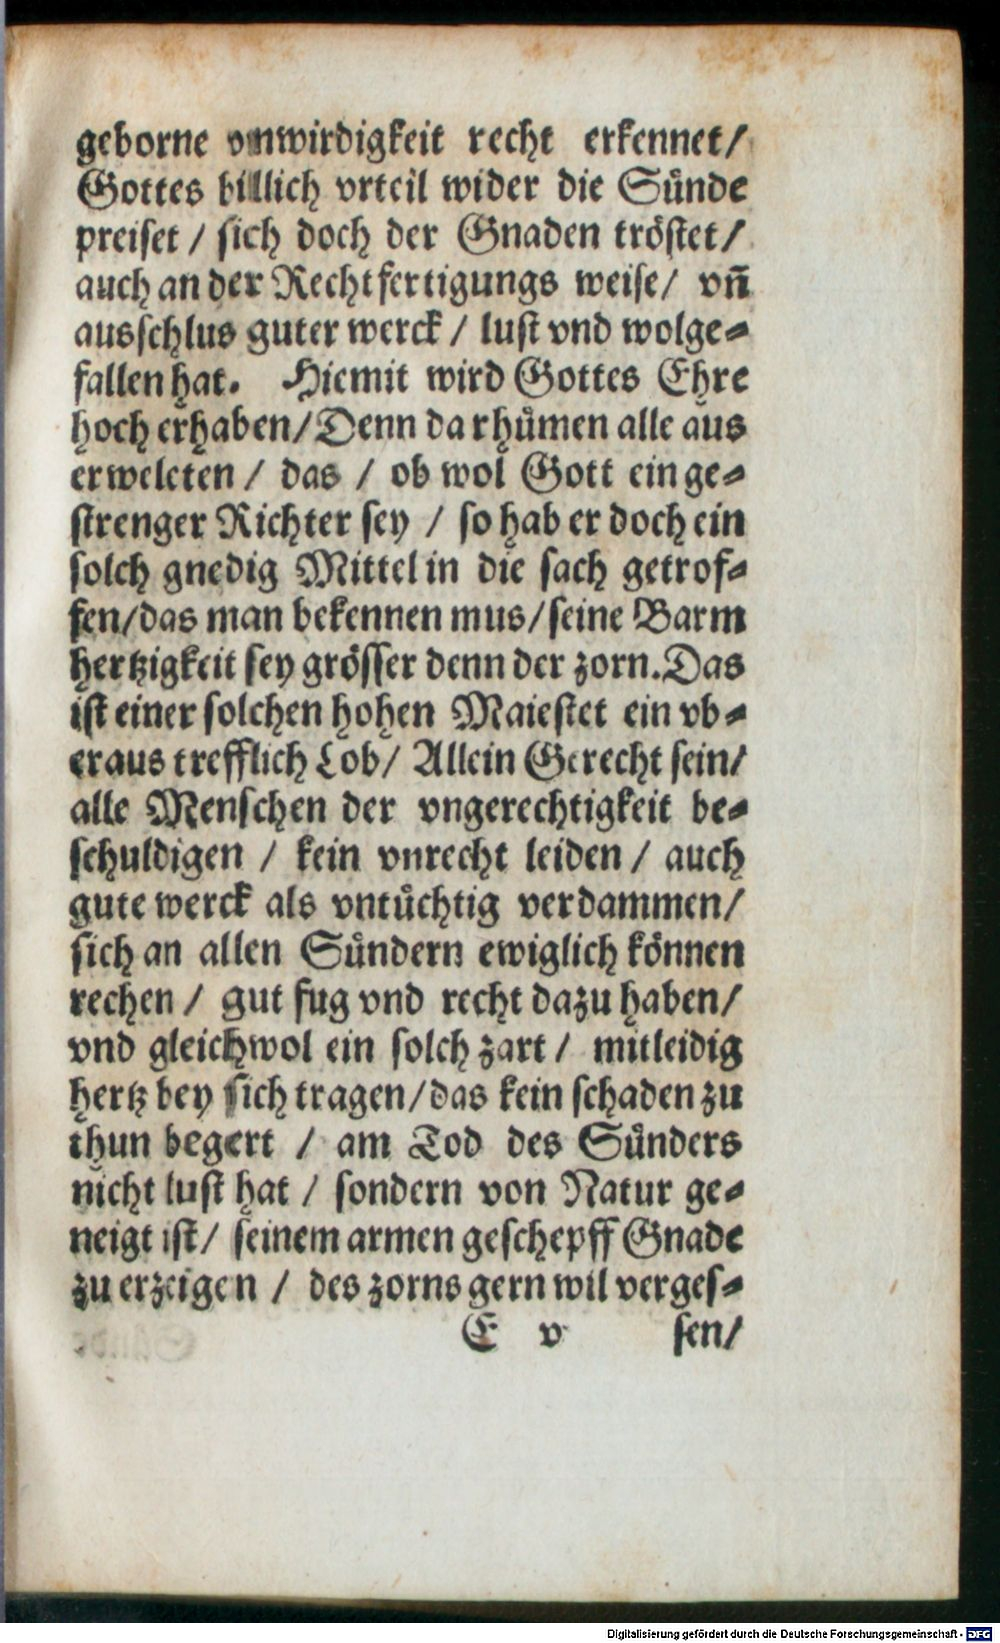 geborne vnwirdigkeit recht erkennet/
Gottes billich vrteil wider die Sünde
preiset / sich doch der Gnaden tröstet/
auch an der Rechtfertigungs weise/ vn̄
ausschlus guter werck / lust vnd wolge-
fallen hat. Hiemit wird Gottes Ehre
hoch erhaben/Denn da rhümen alle aus
erweleten / das / ob wol Gott ein ge-
strenger Richter sey / so hab er doch ein
solch gnedig Mittel in die sach getrof-
fen/das man bekennen mus/seine Barm
hertzigkeit sey grösser denn der zorn.Das
ist einer solchen hohen Maiestet ein vb-
eraus trefflich Lob/ Allein Gerecht sein/
alle Menschen der vngerechtigkeit be-
schuldigen / kein vnrecht leiden / auch
gute werck als vntüchtig verdammen/
sich an allen Sündern ewiglich können
rechen / gut fug vnd recht dazu haben/
vnd gleichwol ein solch zart / mitleidig
hertz bey sich tragen/das kein schaden zu
thun begert / am Tod des Sünders
nicht lust hat / sondern von Natur ge-
neigt ist/ seinem armen geschepff Gnade
zu erzeigen / des zorns gern wil verges-
E v sen/
Digitalisierung gefördert durch die Deutsche Forschungsgemeinschaft - DFG